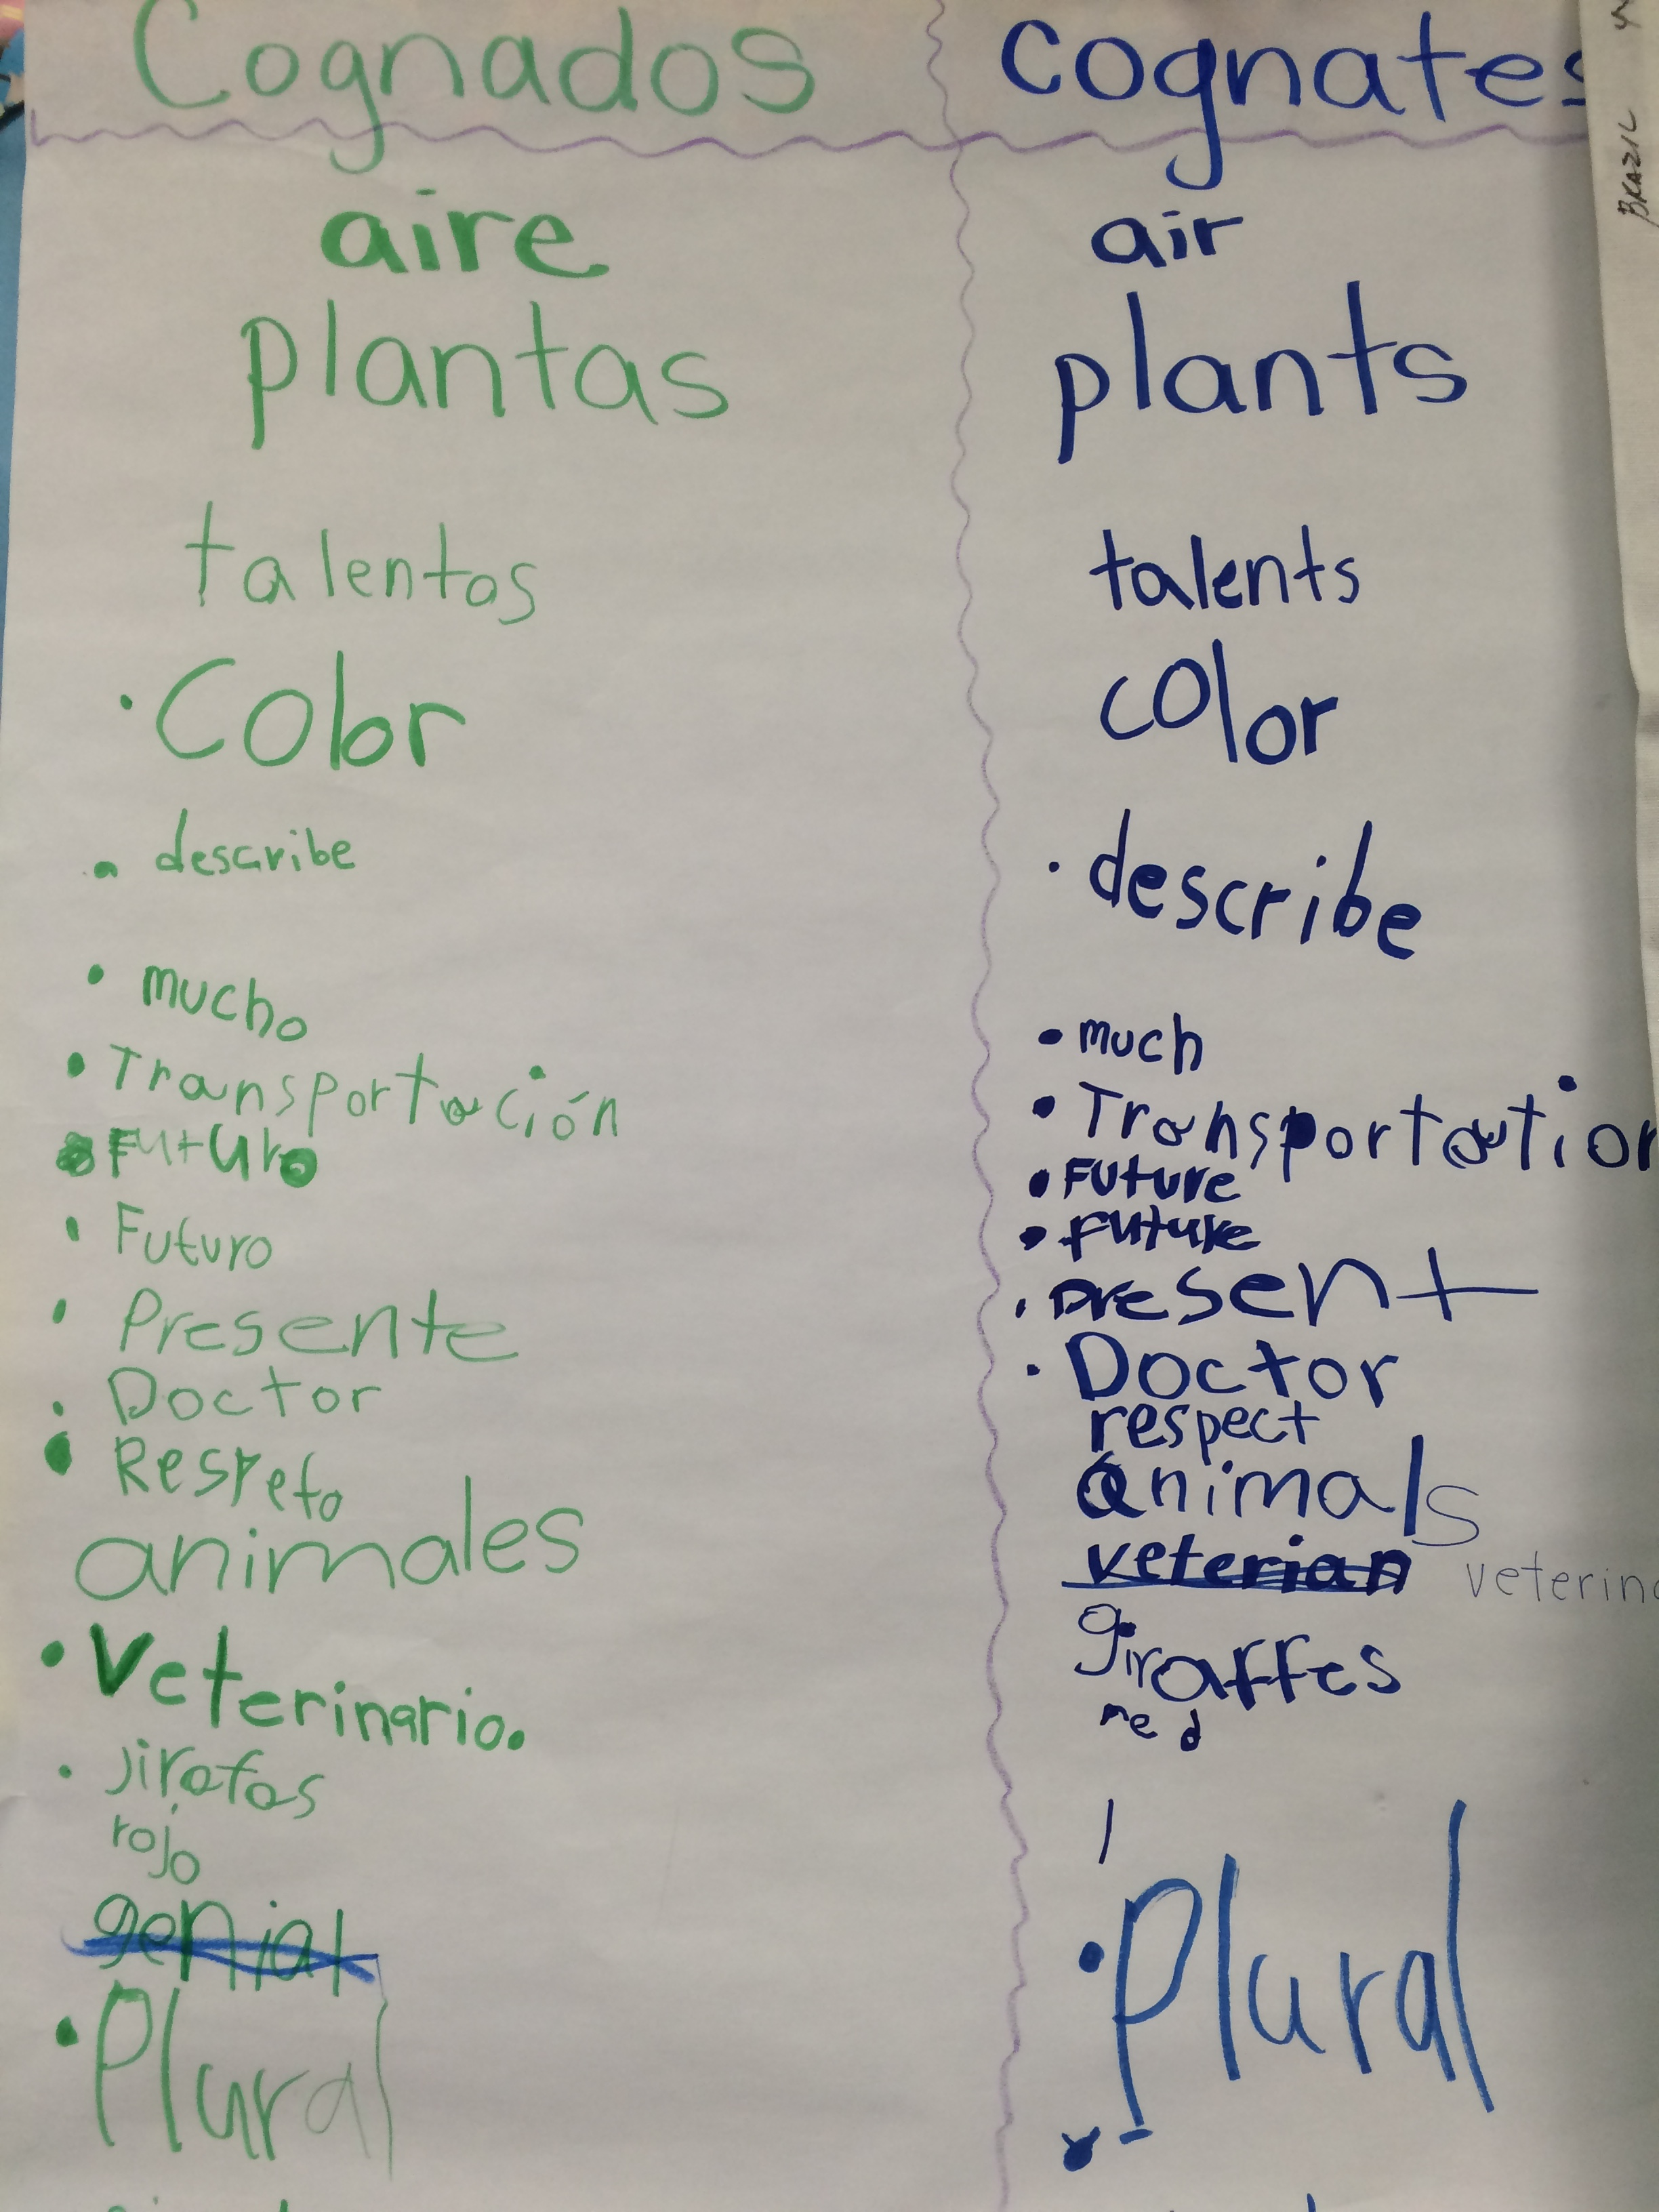 Cognados
aire
plantas
talentos
· Color
· describe
• mucho
• Transportación
• Futuro
• Futuro
• Presente
• Doctor
• Respeto
animales
• Veterinario.
• jirafas
rojo
genial
• Plural
cognates
air
plants
talents
color
· describe
• much
• Transportation
• Future
• future
• present
• Doctor
respect
animals
veterian veterina
giraffes
red
• Plural
BRAZIL